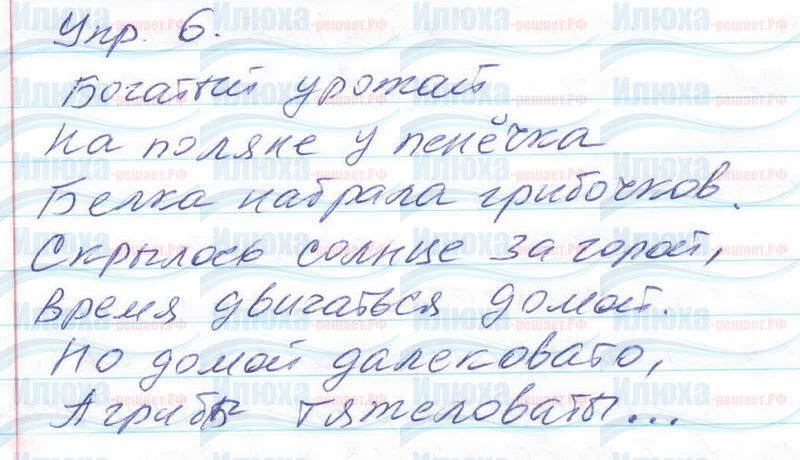 Упр. 6.
Богатый урожай
На поляне у пенёчка
Белка набрала грибочков.
Скрылось солнце за горой,
Время двигаться домой.
Но домой далековато,
А грибы тяжеловаты...